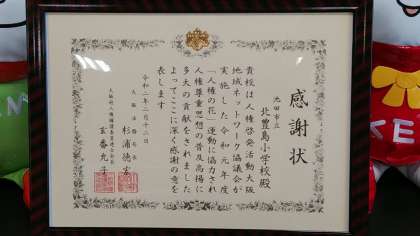 感謝状
池田市立
北豊島小学校殿
貴校は人権啓発活動大阪
地域ネットワーク協議会が
実施した令和元年度
「人権の花」運動に協力され
人権尊重思想の普及高揚に
多大の貢献をされました
よってここに深く感謝の意を
表します
令和二年二月十二日
大阪法務局長
杉浦徳宏
大阪府人権擁護委員連合会長